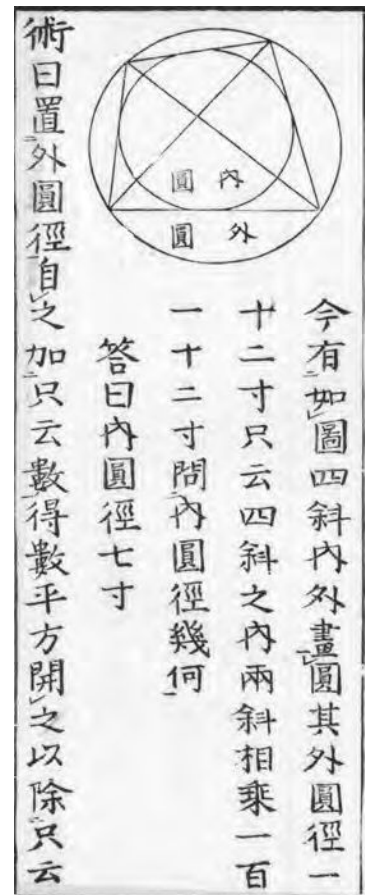 內圓
外圓
今有如圖四斜內外畫圓其外圓徑一
十二寸只云四斜之內兩斜相乘一百
一十二寸問內圓徑幾何
答曰內圓徑七寸
術曰置外圓徑自之加只云數得數平方開之以除只云